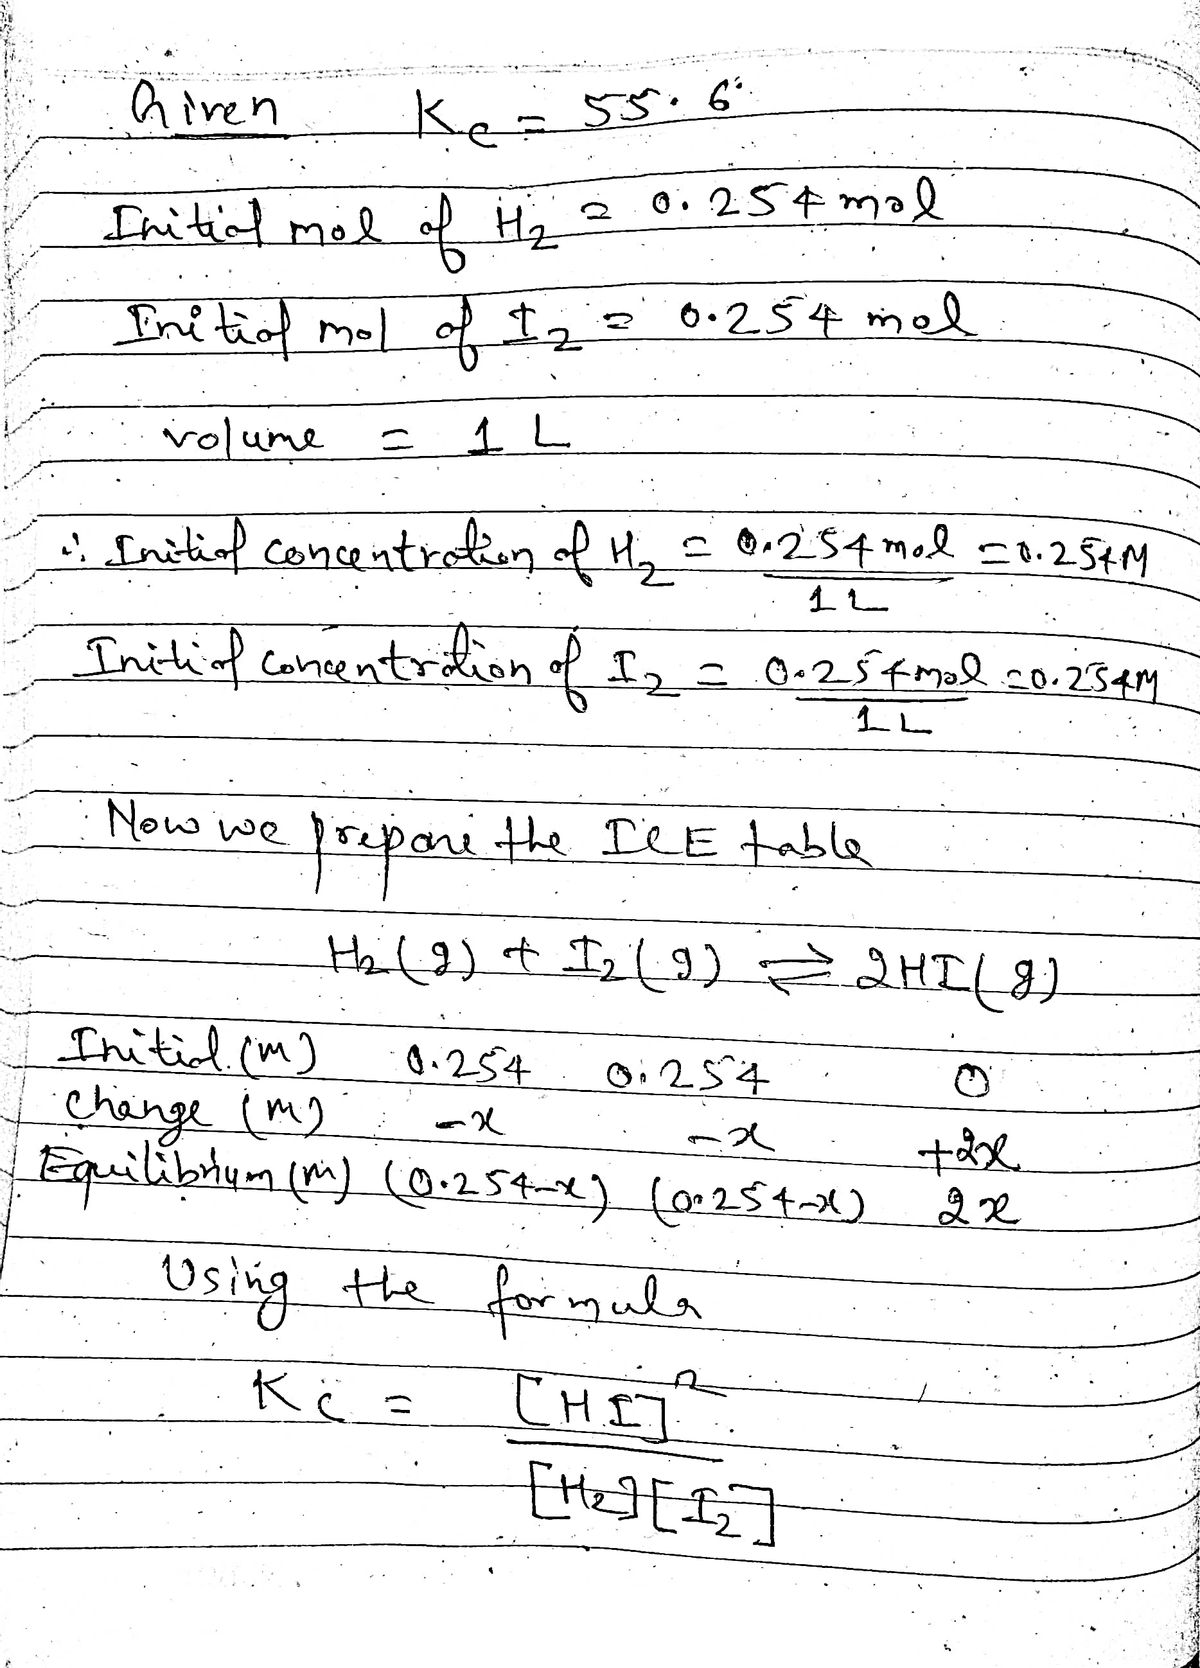 Given Kc = 55.6
Initial mol of H₂ = 0.254 mol
Initial mol of I₂ = 0.254 mol
volume = 1 L
∴ Initial concentration of H₂ = 0.254 mol = 0.254 M
1 L
Initial concentration of I₂ = 0.254 mol = 0.254 M
1 L
Now we prepare the ICE table
H₂(g) + I₂(g) ⇌ 2HI(g)
Initial (m) 0.254 0.254 0
change (m) -x -x +2x
Equilibrium (m) (0.254-x) (0.254-x) 2x
Using the formula
Kc = [HI]²
[H₂][I₂]